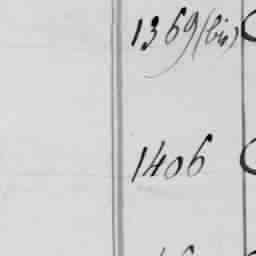 1369(bis)
1406